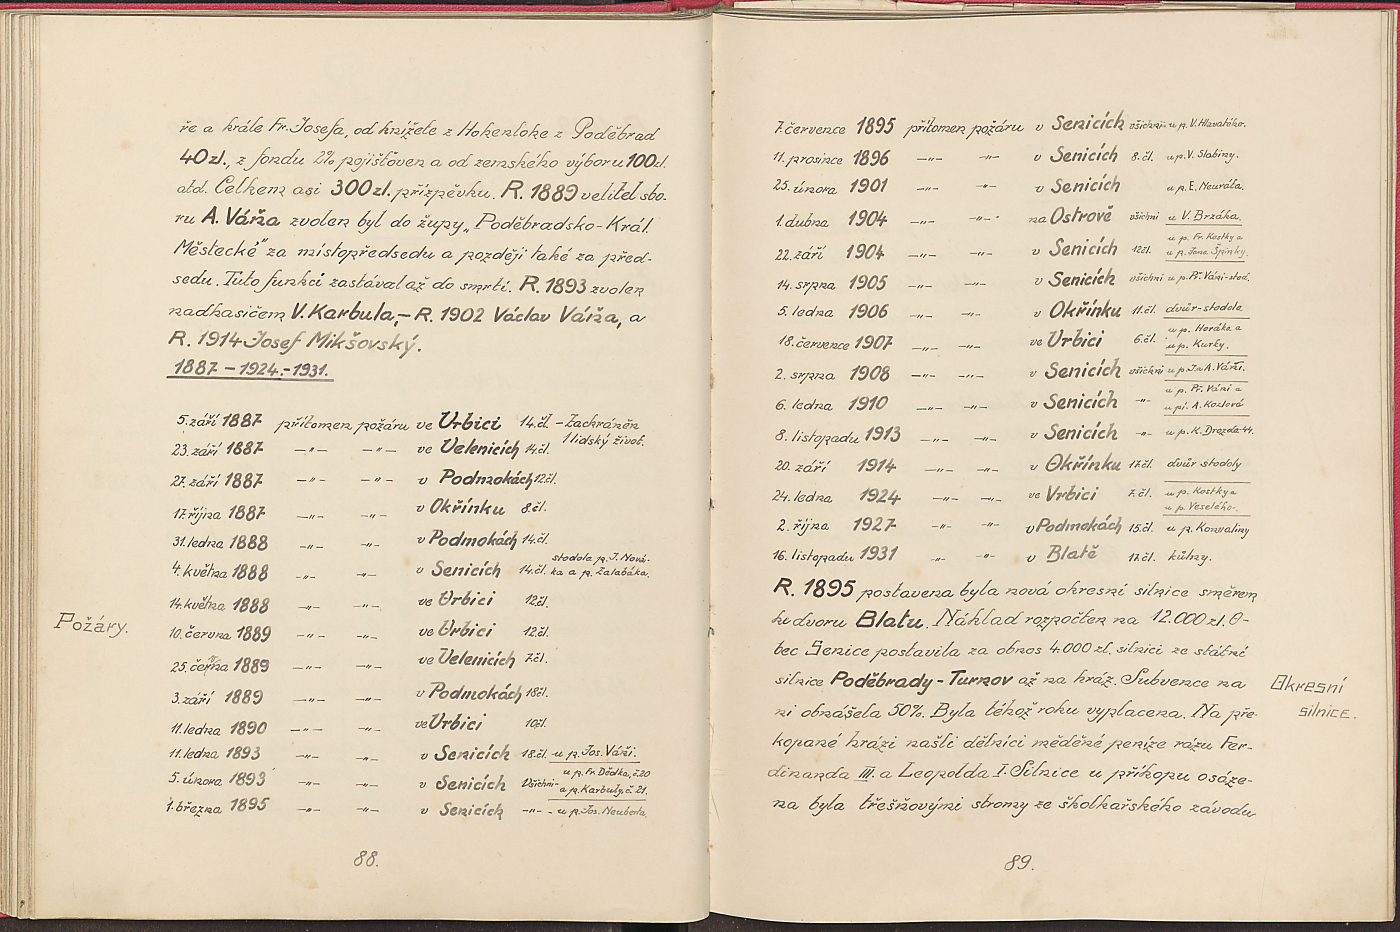 ře a krále Fr. Josefa, od knížele z Hohenlohe z Poděbrad
40 zl., z fondu 2% pojišťoven a od zemského výboru 100 zl.
atd. Celkem asi 300 zl. příspěvku. R. 1889 velitel sbo-
ru A. Váňa zvolen byl do župy „Poděbradsko-Král.
Městecké" za místopředsedu a později také za před-
sedu. Tuto funkci zastával až do smrti. R. 1893 zvolen
nadhasičem V. Karbula, – R. 1902 Václav Váňa, a
R. 1914 Josef Mikšovský.
1887 – 1924. – 1931.
Požáry.
5. září 1887 přítomen požáru ve Vrbici 14.čl. – Zachráněn
1 lidský život.
23. září 1887 –„– –„– ve Velenicích 14.čl.
27. září 1887 –„– –„– v Podmokách 12.čl.
17. října 1887 –„– –„– v Okřínku 8.čl.
31. ledna 1888 –„– –„– v Podmokách 14.čl.
4. května 1888 –„– –„– v Senicích 14.čl. stodola p. J. Nová-
ka a p. Zalabáka.
14. května 1888 –„– –„– ve Vrbici 12.čl.
10. června 1889 –„– –„– ve Vrbici 12.čl.
25. června 1889 –„– –„– ve Velenicích 7.čl.
3. září 1889 –„– –„– v Podmokách 18čl.
11. ledna 1890 –„– –„– ve Vrbici 10čl.
11. ledna 1893 –„– –„– v Senicích 18.čl. – u p. Jos. Váňi.
5. února 1893 –„– –„– v Senicích Všichni – u p. Fr. Dědka, č. 20
a p. Karbuly, č. 21.
1. března 1895 –„– –„– v Senicích –„– – u p. Jos. Neuberta.
88.
7. července 1895 přítomen požáru v Senicích všichni u p. V. Hlavatého.
11. prosince 1896 –„– –„– v Senicích 8.čl. u p. V. Slabiny.
25. února 1901 –„– –„– v Senicích u p. E. Neuráta.
1. dubna 1904 –„– –„– na Ostrově všichni u V. Brzáka.
22. září 1904 –„– –„– v Senicích 12čl. u p. Fr. Kostky a
u p. Jana Špinky.
14. srpna 1905 –„– –„– v Senicích všichni u p. Fr. Váni-stod.
5. ledna 1906 –„– –„– v Okřínku 11.čl. dvůr-stodola
18. července 1907 –„– –„– ve Vrbici 6.čl. u p. Horáka a
u p. Kurky.
2. srpna 1908 –„– –„– v Senicích všichni u p. J. a A. Váňi.
6. ledna 1910 –„– –„– v Senicích –„– u p. Fr. Váni a
u pí. A. Kozlové
8. listopadu 1913 –„– –„– v Senicích –„– u p. K. Drozda 44.
20. září 1914 –„– –„– v Okřínku 17.čl. dvůr stodoly
24. ledna 1924 –„– –„– ve Vrbici 7.čl. u p. Kostky a
u p. Veselého.
2. října 1927 –„– –„– v Podmokách 15.čl. u p. Konvaliny
16. listopadu 1931 „– –„– v Blatě 17.čl. kůlny.
R. 1895 postavena byla nová okresní silnice směrem
ke dvoru Blatu. Náklad rozpočten na 12.000 zl. O-
bec Senice postavila za obnos 4.000 zl. silnici ze státní
silnice Poděbrady – Turnov až na hráz. Subvence na
ni obnášela 50%. Byla téhož roku vyplacena. Na pře-
kopané hrázi našli dělníci měděné peníze rázu Fer-
dinanda III. a Leopolda I. Silnice u příkopu osáze-
na byla třešňovými stromy ze školkařského závodu
Okresní
silnice.
89.